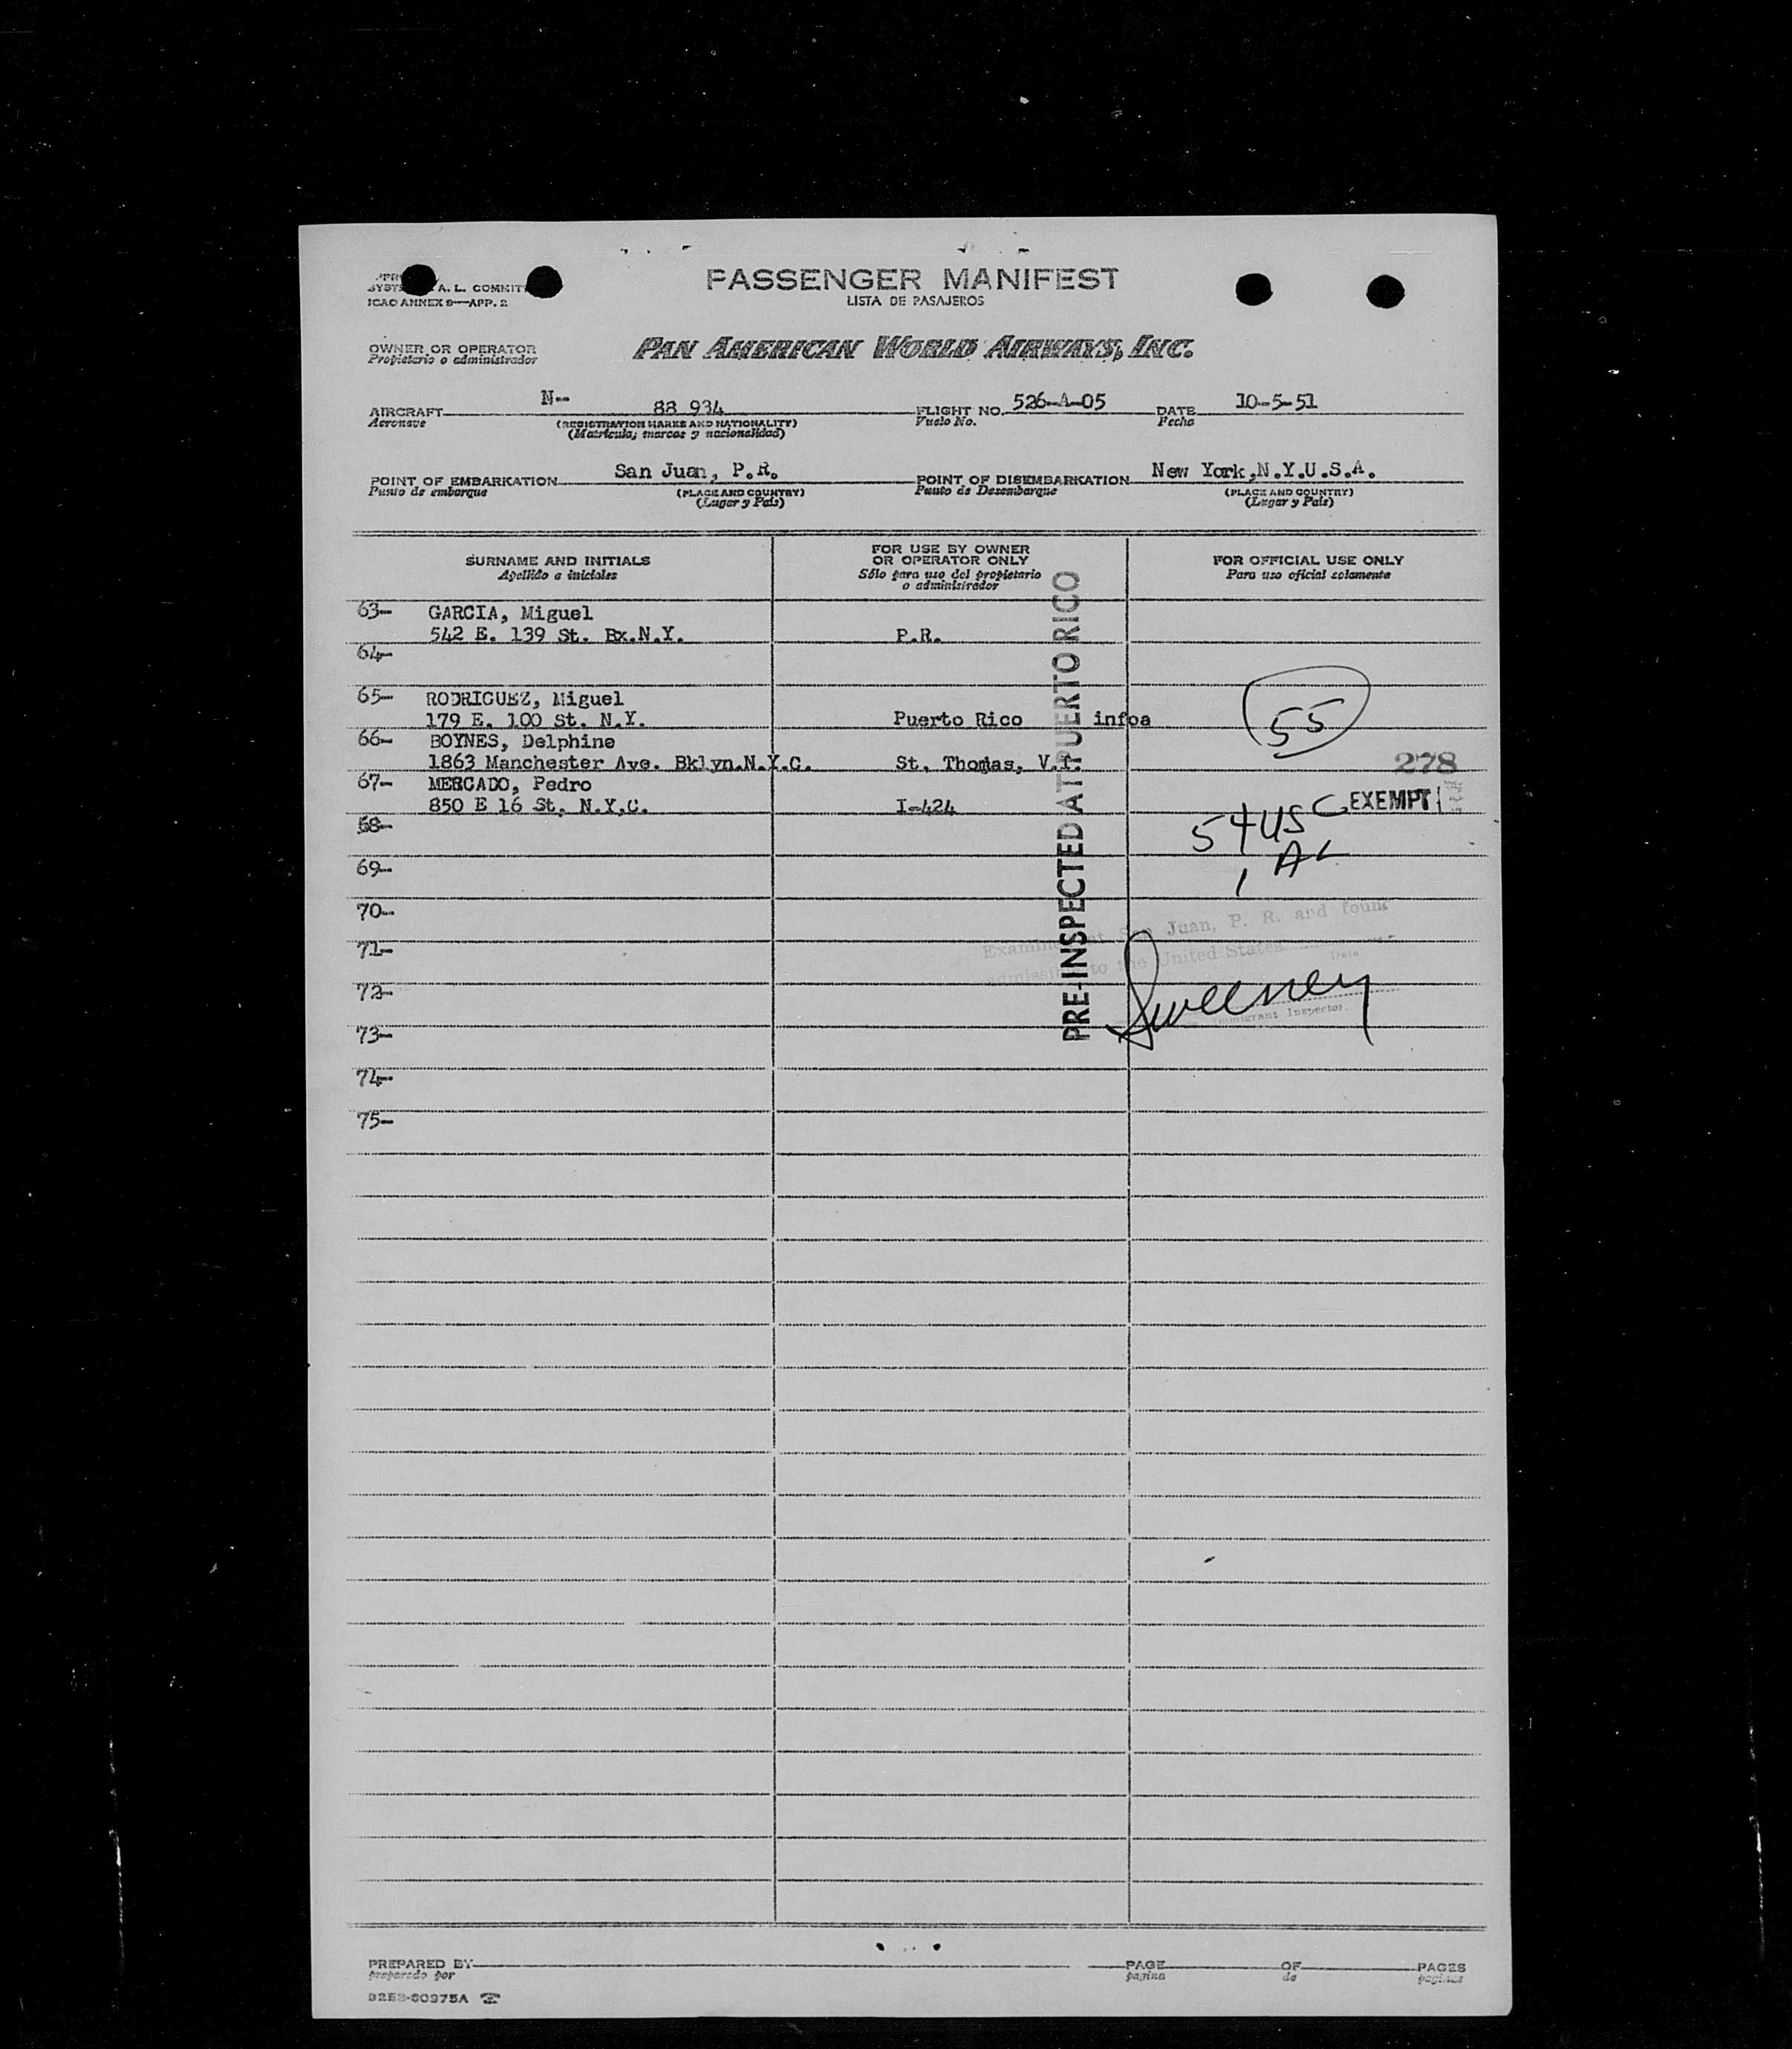 SYST A. L. COMMIT
ICAO ANNEX 9—APP. 2
PASSENGER MANIFEST
LISTA DE PASAJEROS
OWNER OR OPERATOR
Propietario o administrador
PAN AMERICAN WORLD AIRWAYS, INC.
AIRCRAFT N-- 88 934 FLIGHT NO. 526-A-05 DATE 10-5-51
Aeronave (REGISTRATION MARKS AND NATIONALITY) Vuelo No. Fecha
(Matrícula, marcas y nacionalidad)
POINT OF EMBARKATION San Juan, P.R. POINT OF DISEMBARKATION New York,N.Y.U.S.A.
Punto de embarque (PLACE AND COUNTRY) Punto de Desembarque (PLACE AND COUNTRY)
(Lugar y País) (Lugar y País)
SURNAME AND INITIALS FOR USE BY OWNER OR OPERATOR ONLY FOR OFFICIAL USE ONLY
Apellido e iniciales Sólo para uso del propietario o administrador Para uso oficial solamente
63- GARCIA, Miguel
542 E. 139 St. Bx.N.Y. P.R.
64-
65- RODRIGUEZ, Miguel
179 E. 100 St. N.Y. Puerto Rico infoa
55
66- BOYNES, Delphine
1863 Manchester Ave. Bklyn.N.Y.C. St. Thomas, V.I.
278
67- MERCADO, Pedro
850 E 16 St. N.Y.C. I-424
EXEMPT
68-
54 USC
69-
1 AL
70-
71-
72-
73-
74-
75-
PRE-INSPECTED AT PUERTO RICO
Examined at San Juan, P. R. and found
admissible to the United States
Date
Sweeney
Immigrant Inspector.
PREPARED BY PAGE OF PAGES
preparado por pagina de paginas